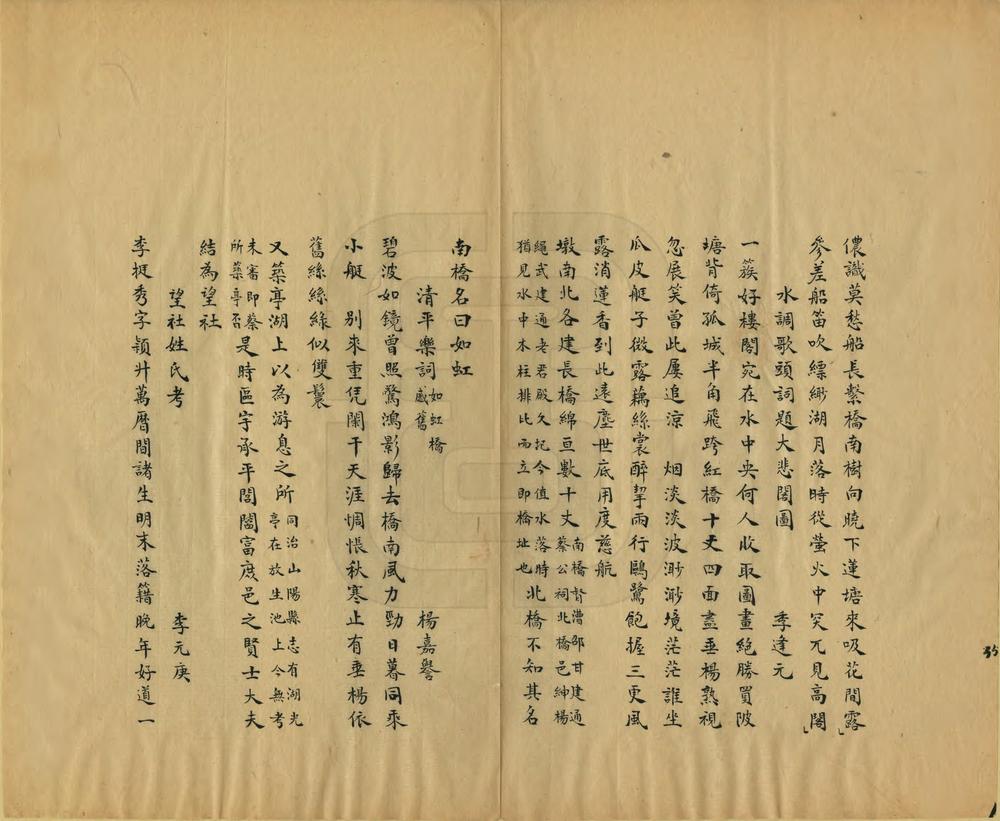 儂識莫愁船長繫橋南樹向曉下蓮塘來吸花間露
參差船笛吹縹緲湖月落時從螢火中突兀見高閣
水調歌頭詞題大悲閣圖　季逢元
一簇好樓閣宛在水中央何人收取圖畫絕勝買陂
塘背倚孤城半角飛跨紅橋十丈四面盡垂楊熟視
忽展笑曾此屢追涼　烟淡淡波渺渺境茫茫誰坐
瓜皮艇子微露藕絲裳醉挈兩行鷗鷺飽握三更風
露消蓮香到此遠塵世底用度慈航
墩南北各建長橋綿亘數十丈南橋督漕邵甘建通蔡公祠北橋邑紳楊
繩武建通老君殿久圮今值水落時猶見水中木柱排比而立即橋址也北橋不知其名
南橋名曰如虹
清平樂詞如虹橋感舊　楊嘉譽
碧波如鏡曾照驚鴻影歸去橋南風力勁日暮同乘
小艇　別來重凭闌干天涯惆悵秋寒止有垂楊依
舊絲絲綠似雙鬟
又築亭湖上以為游息之所同治山陽縣志有湖光亭在放生池上今無考
未審即蔡所築亭否是時區宇承平閭閻富庶邑之賢士大夫
結為望社
望社姓氏考　李元庚
李挺秀字穎升萬曆間諸生明末落籍晚年好道一
35